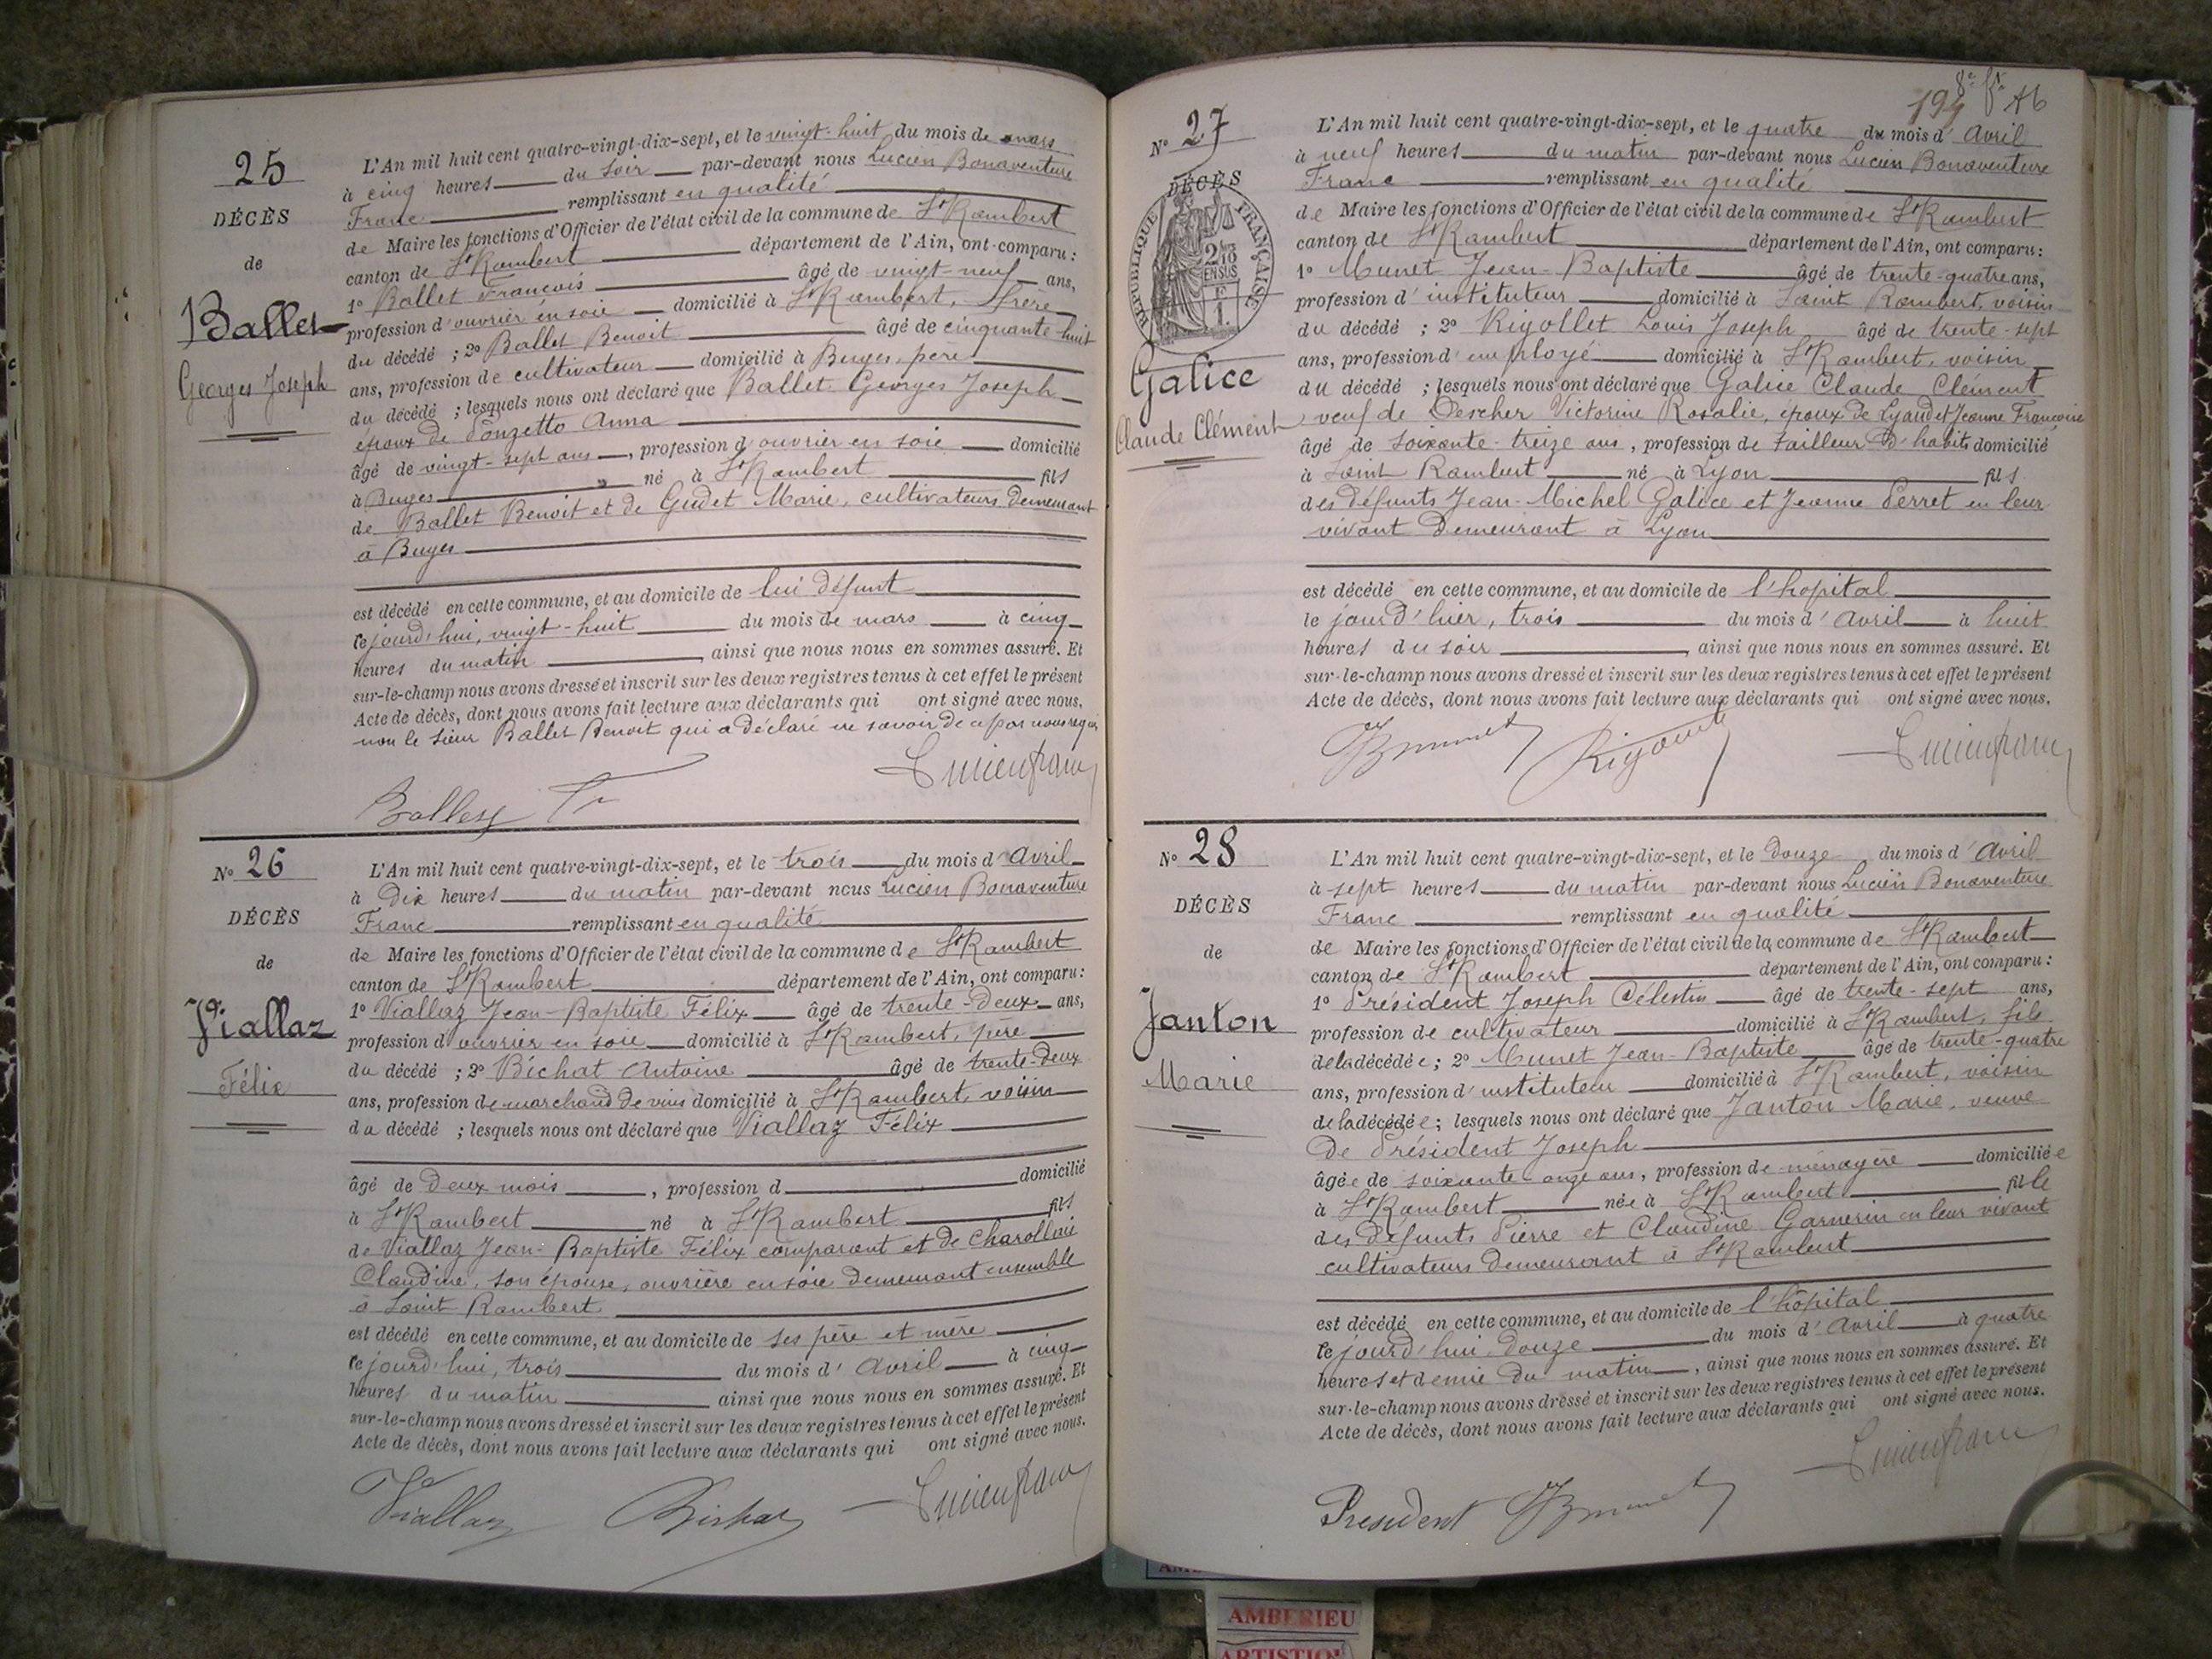 25
DÉCÈS
de
Ballet
Georges Joseph
L'An mil huit cent quatre-vingt-dix-sept, et le vingt-huit du mois de mars
à cinq heures du soir par-devant nous Lucien Bonaventure
Franc remplissant en qualité
de Maire les fonctions d'Officier de l'état civil de la commune de St Rambert
canton de St Rambert département de l'Ain, ont comparu:
1o Ballet François âgé de vingt-neuf ans,
profession d'ouvrier en soie domicilié à St Rambert, frère
du décédé ; 2o Ballet Benoit âgé de cinquante-huit
ans, profession de cultivateur domicilié à Buges, père
du décédé ; lesquels nous ont déclaré que Ballet Georges Joseph
époux de Ponzetto Anna
âgé de vingt-sept ans, profession d'ouvrier en soie domicilié
à Buges né à St Rambert fils
de Ballet Benoit et de Gudet Marie, cultivateurs demeurant
à Buges
est décédé en cette commune, et au domicile de lui défunt
cejourd'hui, vingt-huit du mois de mars à cinq
heures du matin, ainsi que nous nous en sommes assuré. Et
sur-le-champ nous avons dressé et inscrit sur les deux registres tenus à cet effet le présent
Acte de décès, dont nous avons fait lecture aux déclarants qui ont signé avec nous,
non le sieur Ballet Benoit qui a déclaré ne savoir de ce par nous requis
Ballet Fr
Lucien franc
No 26
DÉCÈS
de
Viallaz
Félix
L'An mil huit cent quatre-vingt-dix-sept, et le trois du mois d'Avril
à Dix heures du matin par-devant nous Lucien Bonaventure
Franc remplissant en qualité
de Maire les fonctions d'Officier de l'état civil de la commune de St Rambert
canton de St Rambert département de l'Ain, ont comparu:
1o Viallaz Jean-Baptiste Félix âgé de trente-deux ans,
profession d'ouvrier en soie domicilié à St Rambert, père
du décédé ; 2o Béchat Antoine âgé de trente-deux
ans, profession de marchand de vins domicilié à St Rambert, voisin
du décédé ; lesquels nous ont déclaré que Viallaz Félix
âgé de deux mois, profession d domicilié
à St Rambert né à St Rambert fils
de Viallaz Jean-Baptiste Félix comparant et de Charollais
Claudine, son épouse, ouvrière en soie demeurant ensemble
à Saint Rambert
est décédé en cette commune, et au domicile de ses père et mère
cejourd'hui, trois du mois d'Avril à cinq
heures du matin ainsi que nous nous en sommes assuré. Et
sur-le-champ nous avons dressé et inscrit sur les deux registres tenus à cet effet le présent
Acte de décès, dont nous avons fait lecture aux déclarants qui ont signé avec nous.
Viallaz
Lucien franc
194
No 27
DÉCÈS
RÉPUBLIQUE FRANÇAISE
Galice
Claude Clément
L'An mil huit cent quatre-vingt-dix-sept, et le quatre du mois d'Avril
à neuf heures du matin par-devant nous Lucien Bonaventure
Franc remplissant en qualité
de Maire les fonctions d'Officier de l'état civil de la commune de St Rambert
canton de St Rambert département de l'Ain, ont comparu:
1o Munet Jean-Baptiste âgé de trente-quatre ans,
profession d'instituteur domicilié à Saint Rambert, voisin
du décédé ; 2o Rigollet Louis Joseph âgé de trente-sept
ans, profession d'employé domicilié à St Rambert, voisin
du décédé ; lesquels nous ont déclaré que Galice Claude Clément
veuf de Descher Victorine Rosalie, époux de Lyaudet Jeanne Françoise
âgé de soixante-treize ans, profession de tailleur d'habits domicilié
à Saint Rambert né à Lyon fils
des défunts Jean-Michel Galice et Jeanne Perret en leur
vivant demeurant à Lyon
est décédé en cette commune, et au domicile de l'hopital
le jour d'hier, trois du mois d'Avril à huit
heures du soir, ainsi que nous nous en sommes assuré. Et
sur-le-champ nous avons dressé et inscrit sur les deux registres tenus à cet effet le présent
Acte de décès, dont nous avons fait lecture aux déclarants qui ont signé avec nous.
Lucien franc
No 28
DÉCÈS
de
Janton
Marie
L'An mil huit cent quatre-vingt-dix-sept, et le douze du mois d'Avril
à sept heures du matin par-devant nous Lucien Bonaventure
Franc remplissant en qualité
de Maire les fonctions d'Officier de l'état civil de la commune de St Rambert
canton de St Rambert département de l'Ain, ont comparu:
1o Président Joseph Célestin âgé de trente-sept ans,
profession de cultivateur domicilié à St Rambert, fils
de la décédée; 2o Munet Jean-Baptiste âgé de trente-quatre
ans, profession d'instituteur domicilié à St Rambert, voisin
de la décédée; lesquels nous ont déclaré que Janton Marie, veuve
de Président Joseph
âgée de soixante-onze ans, profession de ménagère domiciliée
à St Rambert née à St Rambert fille
des défunts Pierre et Claudine Garnerin en leur vivant
cultivateurs demeurant à St Rambert
est décédé en cette commune, et au domicile de l'hôpital
cejourd'hui douze du mois d'Avril à quatre
heures et demie du matin, ainsi que nous nous en sommes assuré. Et
sur-le-champ nous avons dressé et inscrit sur les deux registres tenus à cet effet le présent
Acte de décès, dont nous avons fait lecture aux déclarants qui ont signé avec nous.
Président
Lucien franc
AMBERIEU
ARTISTIQU